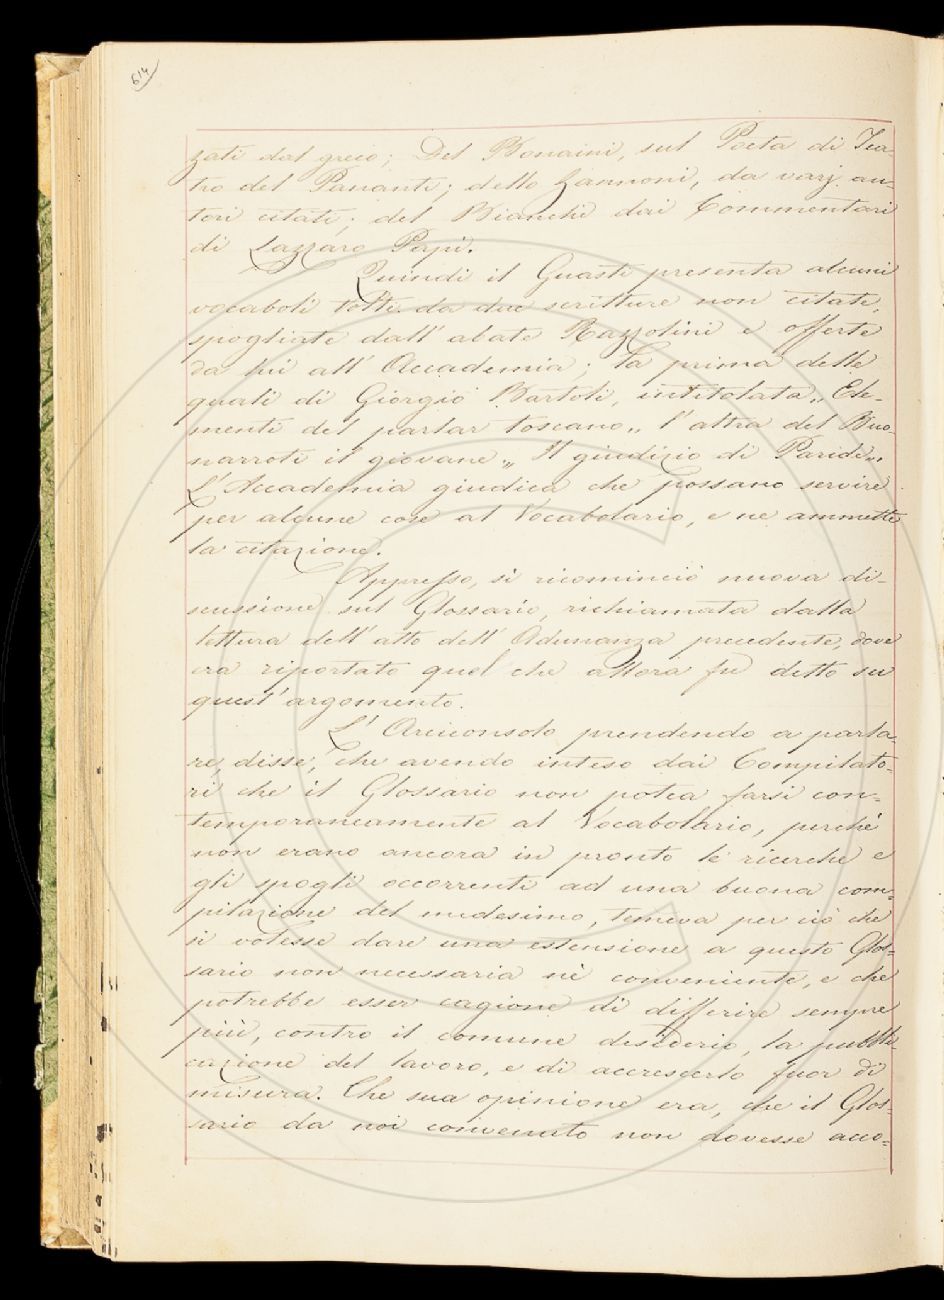 614
zati dal greco; Del Bonaini, sul Poeta di Tea-
tro del Pananti; dello Zannoni, da varj au-
tori citati; del Bianchi dai Commentari
di Lazzaro Papi.
Quindi il Guasti presenta alcuni
vocaboli tolti da due scritture non citate,
spogliate dall'abate Razzolini e offerte
da lui all'Accademia; la prima delle
quali di Giorgio Bartoli, intitolata „ Ele-
menti del parlar toscano „ l'altra del Buo-
narroti il giovane „ Il giudizio di Paride „.
L'Accademia giudica che possano servire
per alcune cose al Vocabolario, e ne ammette
la citazione.
Appresso, si ricominciò nuova di-
scussione sul Glossario, richiamata dalla
lettura dell'atto dell'Adunanza precedente, dove
era riportato quel che allora fu detto su
quest'argomento.
L'Arciconsolo prendendo a parla-
re, disse, che avendo inteso dai Compilato-
ri che il Glossario non potea farsi con-
temporaneamente al Vocabolario, perchè
non erano ancora in pronto le ricerche e
gli spogli occorrenti ad una buona com-
pilazione del medesimo, temeva per ciò che
si volesse dare una estensione a questo Glos-
sario non necessaria nè conveniente, e che
potrebbe esser cagione di differire sempre
più, contro il comune desiderio, la pubbli-
cazione del lavoro, e di accrescerlo fuor di
misura. Che sua opinione era, che il Glos-
sario da noi convenuto non dovesse acco-